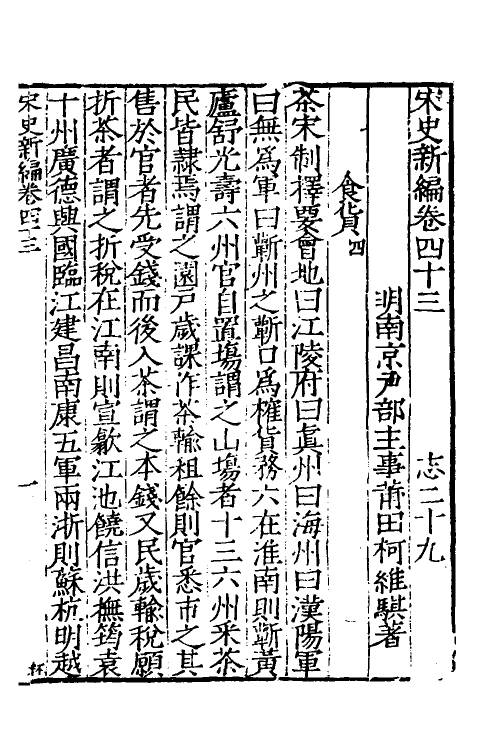 宋史新編卷四十三　志二十九
明南京戶部主事莆田柯維騏著
食貨四
茶宋制擇要會地曰江陵府曰真州曰海州曰漢陽軍
曰無爲軍曰蘄州之蘄口爲榷貨務六在淮南則蘄黃
廬舒光壽六州官自置場謂之山場者十三六州采茶
民皆隷焉謂之園戸歲課作茶輸租餘則官悉市之其
售於官者先受錢而後入茶謂之本錢又民歲輸稅願
折茶者謂之折稅在江南則宣歙江池饒信洪撫筠袁
十州廣德興國臨江建昌南康五軍兩浙則蘇杭明越
宋史新編卷四十三　一